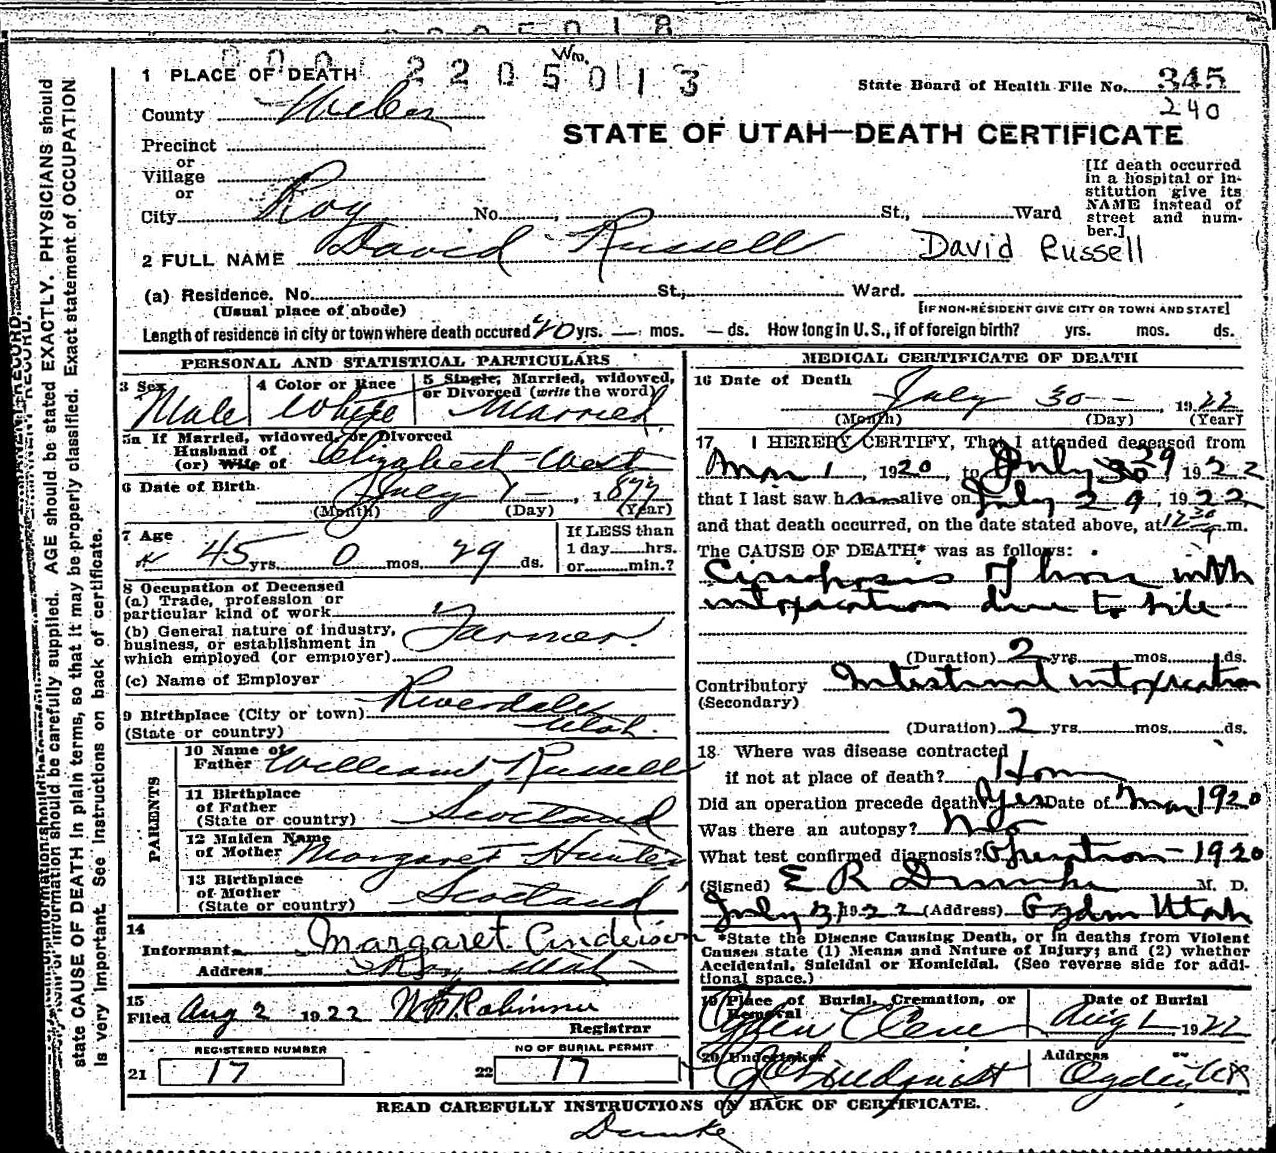 Wm.
2205013
1 PLACE OF DEATH
State Board of Health File No. 345
240
County Weber
STATE OF UTAH—DEATH CERTIFICATE
Precinct
or
Village
or
City Roy No. , St., Ward
[If death occurred in a hospital or in-
stitution give its NAME instead of street and num-
ber.]
2 FULL NAME David Russell David Russell
(a) Residence. No. St., Ward.
(Usual place of abode) [IF NON-RESIDENT GIVE CITY OR TOWN AND STATE]
Length of residence in city or town where death occured 40 yrs. — mos. — ds. How long in U. S., if of foreign birth? yrs. mos. ds.
PERSONAL AND STATISTICAL PARTICULARS
3 Sex Male
4 Color or Race White
5 Single, Married, widowed, or Divorced (write the word) Married
5a If Married, widowed, or Divorced
Husband of
(or) Wife of Elizabeth West
6 Date of Birth July 1 - , 1877
(Month) (Day) (Year)
7 Age 45 yrs. 0 mos. 29 ds.
If LESS than
1 day hrs.
or min.?
8 Occupation of Deceased
(a) Trade, profession or
particular kind of work
(b) General nature of industry,
business, or establishment in
which employed (or employer) Farmer
(c) Name of Employer
9 Birthplace (City or town) Riverdale
(State or country) Utah.
PARENTS
10 Name of Father William Russell
11 Birthplace
of Father
(State or country) Scotland
12 Maiden Name
of Mother Margaret Hunter
13 Birthplace
of Mother
(State or country) Scotland
14
Informant Margaret Anderson
Address Roy Utah
15
Filed Aug 2 1922
Registrar
REGISTERED NUMBER
21 17
NO OF BURIAL PERMIT
22 17
MEDICAL CERTIFICATE OF DEATH
16 Date of Death July 30 — , 1922
(Month) (Day) (Year)
17 I HEREBY CERTIFY, That I attended deceased from
Mar 1 , 1920 , to July 30 29 1922
that I last saw him alive on July 29, 1922
and that death occurred, on the date stated above, at 12 30 m.
The CAUSE OF DEATH* was as follows:
Cirrhosis of liver with
intoxication due to bile
(Duration) 2 yrs. mos. ds.
Contributory Intestinal intoxication
(Secondary)
(Duration) 2 yrs. mos. ds.
18 Where was disease contracted
if not at place of death? Home
Did an operation precede death? Yes Date of Mar 1920
Was there an autopsy? No
What test confirmed diagnosis? Operation - 1920
(Signed) E R Dumke M. D.
July 31 1922 (Address) Ogden Utah
*State the Disease Causing Death, or in deaths from Violent
Causes state (1) Means and Nature of Injury; and (2) whether
Accidental, Suicidal or Homicidal. (See reverse side for addi-
tional space.)
19 Place of Burial, Cremation, or
Removal
Date of Burial
Aug 1 1922
20 Undertaker
Lindquist
Address
Ogden Ut
READ CAREFULLY INSTRUCTIONS ON BACK OF CERTIFICATE.
Dumke
information should be carefully supplied. AGE should be stated EXACTLY. PHYSICIANS should
state CAUSE OF DEATH in plain terms, so that it may be properly classified. Exact statement of OCCUPATION
is very important. See instructions on back of certificate.